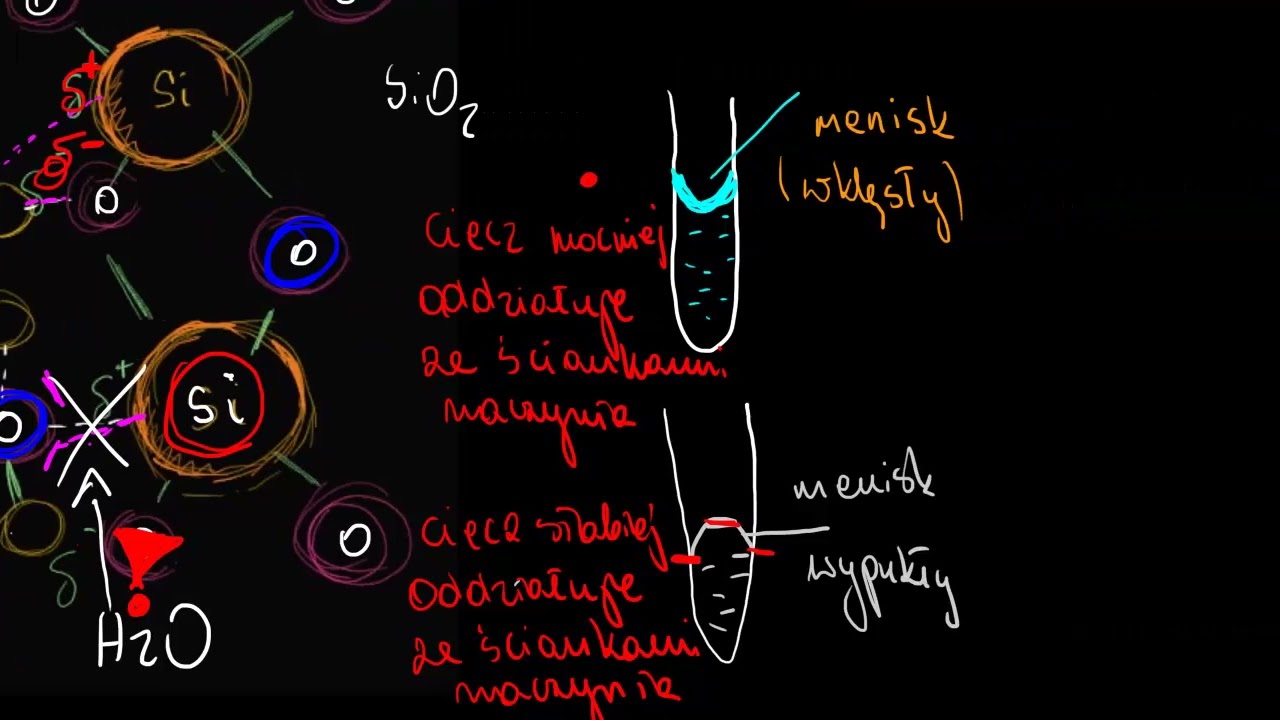 O
Si
δ+
δ-
O
δ
O
SiO2
menisk
(wklęsły)
ciecz mocniej
oddziałuje
ze ściankami
naczynia
δ+
Si
O
O
δ
H2O
menisk
wypukły
ciecz słabiej
oddziałuje
ze ściankami
naczynia